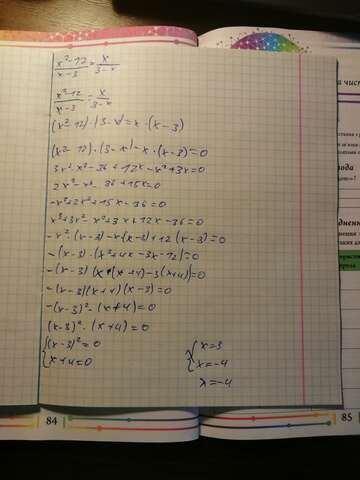 x²-12/x-3 = x/3-x
x²-12/x-3 = x/3-x
(x²-12)·(3-x)=x·(x-3)
(x²-12)·(3-x)-x·(x-3)=0
3x²-x³-36+12x-x²+3x=0
2x²-x³-36+15x=0
-x³+2x²+15x-36=0
-x²·(x-3)-x(x-3)+12(x-3)=0
-(x-3)·(x²+4x-3x-12)=0
-(x-3)·(x·(x+4)-3(x+4))=0
-(x-3)(x+4)(x-3)=0
-(x-3)²·(x+4)=0
(x-3)²·(x+4)=0
(x-3)²=0
x+4=0
x=3
x=-4
x=-4
84
85